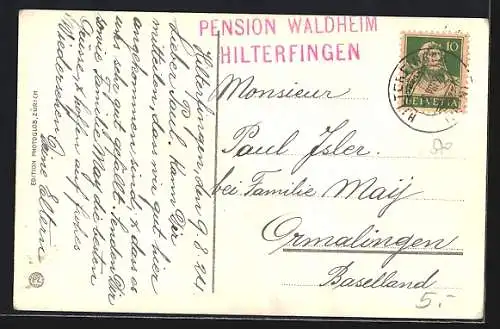 PENSION WALDHEIM
HILTERFINGEN
HELVETIA
10
Hilterfingen, den 9.8.24.
Lieber Paul. Kann Dir
mitteilen, dass wir gut hier
angekommen sind, & dass es
uns sehr gut gefällt. Senden Dir
sowie Familie May die besten
Grüsse, & hoffen auf frohes
Wiedersehen Deine Eltern
EDITION PHOTOGLOB, ZÜRICH
Monsieur
Paul Isler.
bei Familie May
Ormalingen
Baselland
5.-